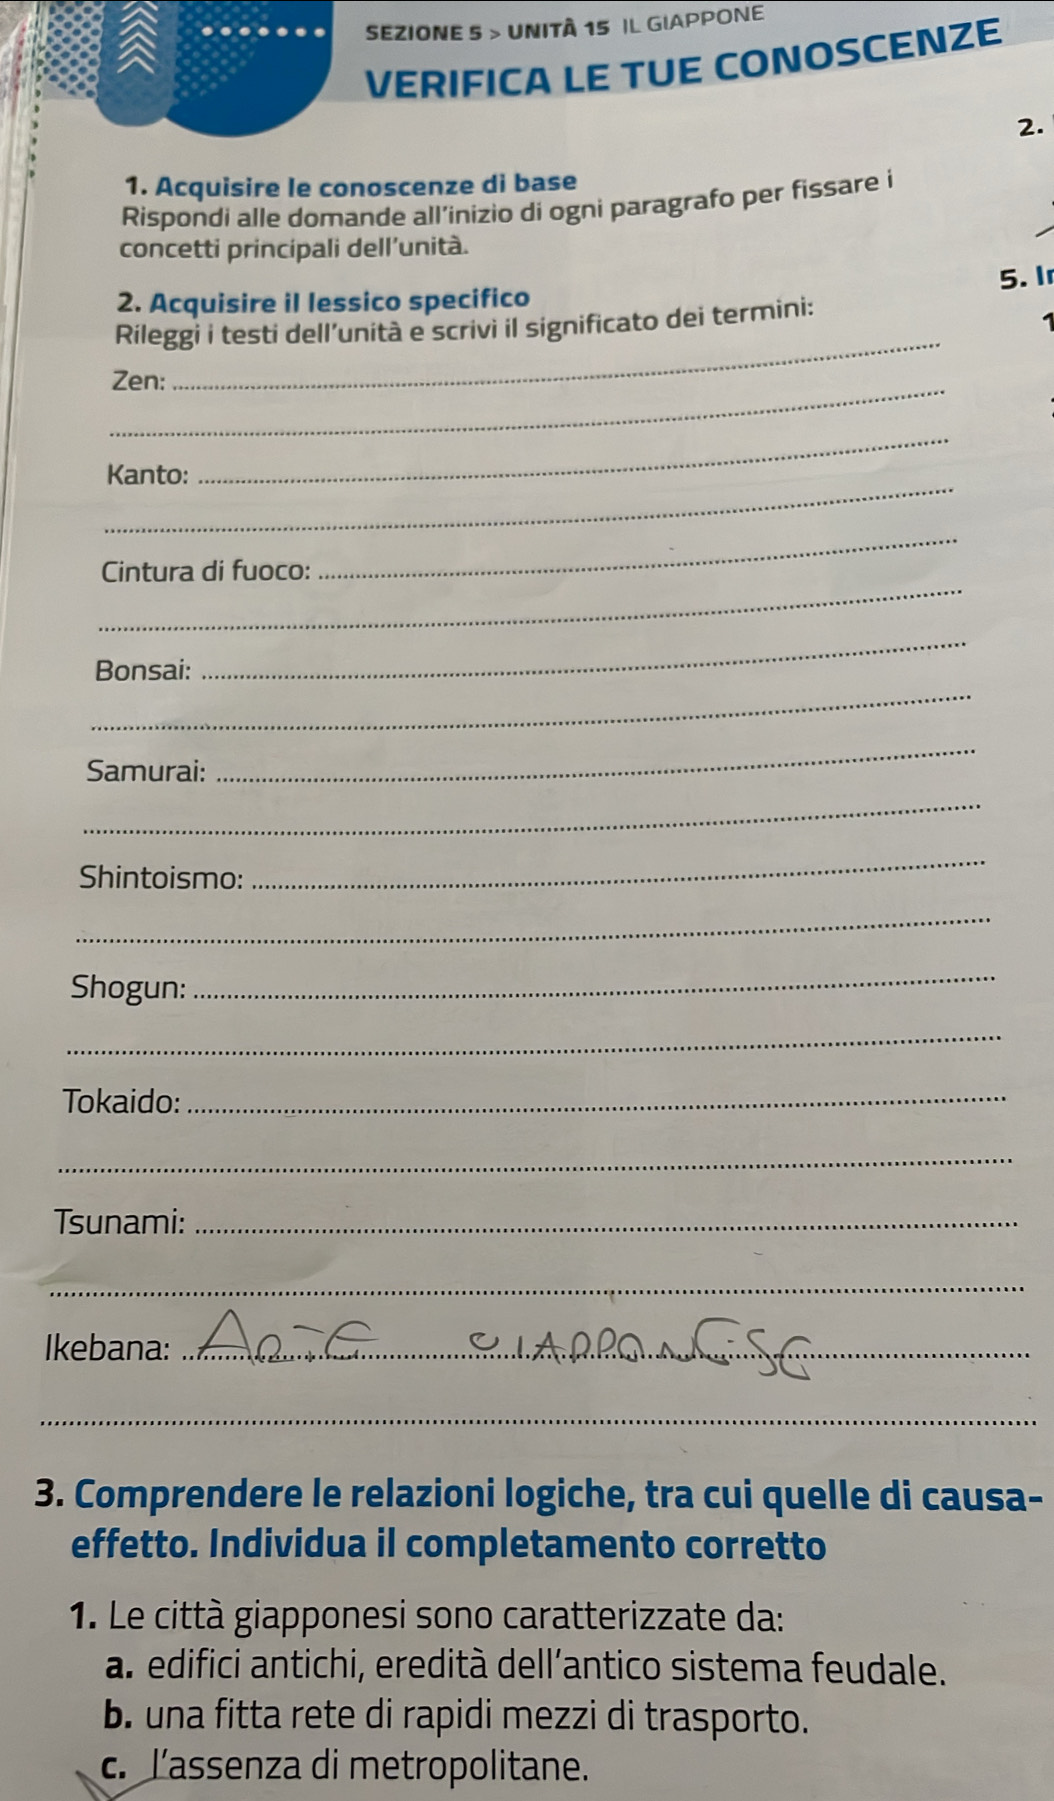 SEZIONE 5 > UNITÀ 15 IL GIAPPONE
VERIFICA LE TUE CONOSCENZE
1. Acquisire le conoscenze di base
Rispondi alle domande all'inizio di ogni paragrafo per fissare i
concetti principali dell'unità.
2. Acquisire il lessico specifico
Rileggi i testi dell'unità e scrivi il significato dei termini:
Zen:
Kanto:
Cintura di fuoco:
Bonsai:
Samurai:
Shintoismo:
Shogun:
Tokaido:
Tsunami:
Ikebana: ARTE GIAPPONESE
3. Comprendere le relazioni logiche, tra cui quelle di causa-
effetto. Individua il completamento corretto
1. Le città giapponesi sono caratterizzate da:
a. edifici antichi, eredità dell'antico sistema feudale.
b. una fitta rete di rapidi mezzi di trasporto.
c. l'assenza di metropolitane.
2.
5.